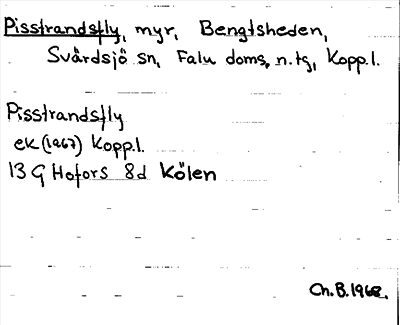 Pisstrandsfly, myr, Bengtsheden,
Svärdsjö sn, Falu doms. n. tg, Kopp.l.
Pisstrandsfly
ek (1967) Kopp.l.
13 G Hofors 8d Kölen
Ch.B.1968.